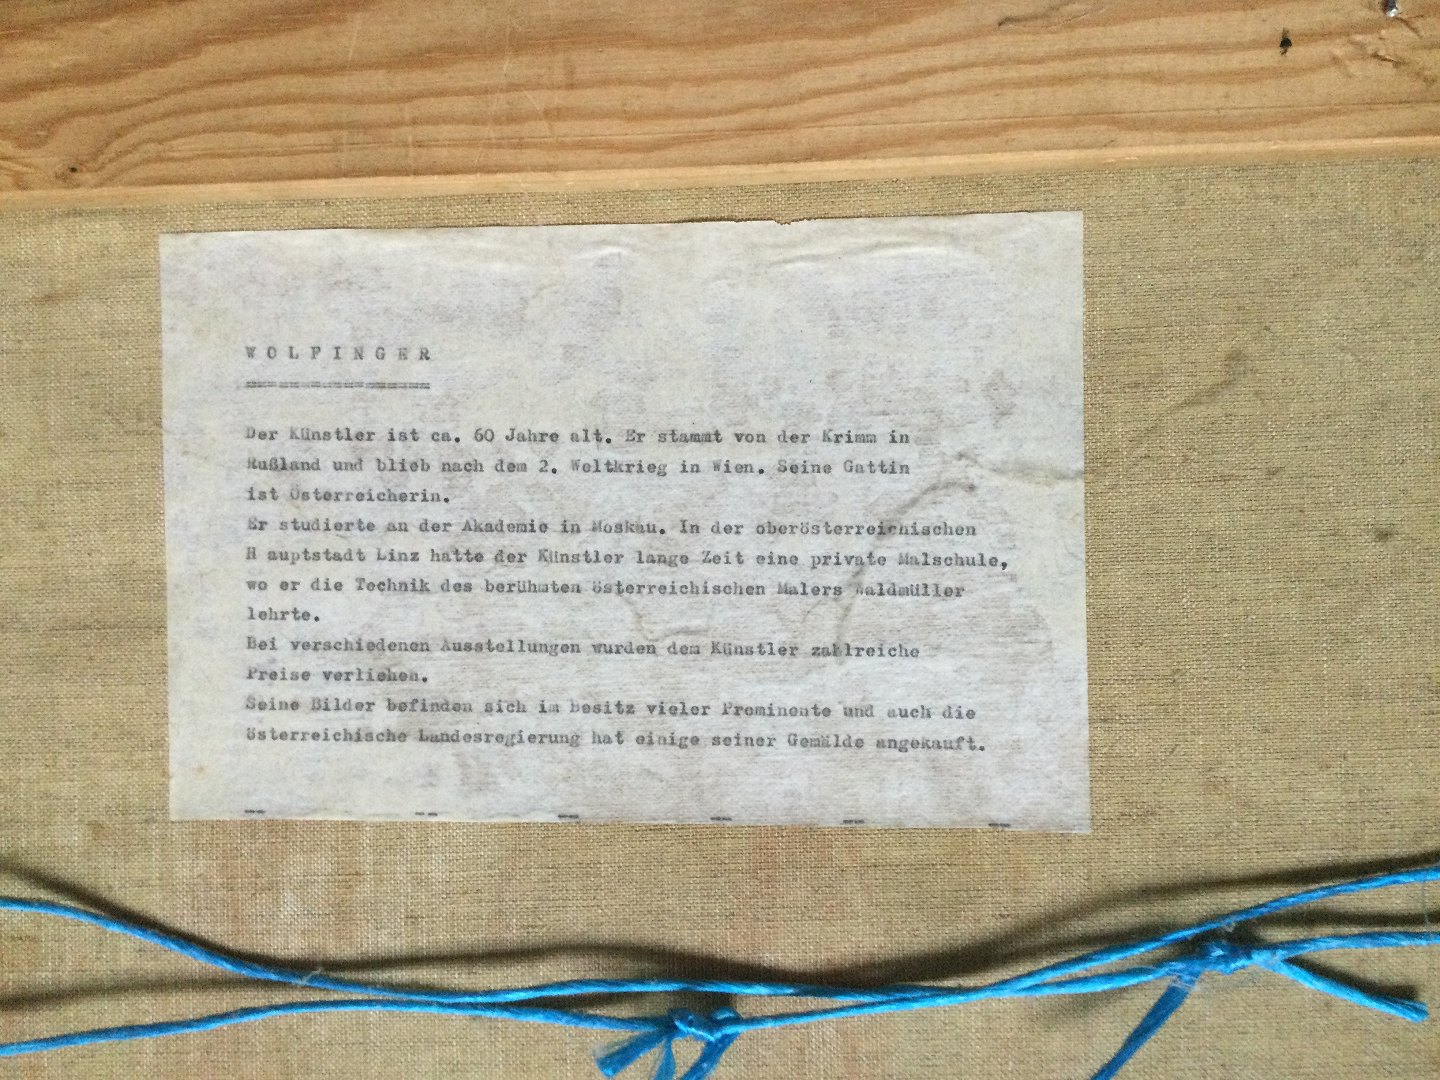 W O L F I N G E R
=================
Der Künstler ist ca. 60 Jahre alt. Er stammt von der Krimm in
Rußland und blieb nach dem 2. Weltkrieg in Wien. Seine Gattin
ist Österreicherin.
Er studierte an der Akademie in Moskau. In der oberösterreichischen
H auptstadt Linz hatte der Künstler lange Zeit eine private Malschule,
wo er die Technik des berühmten österreichischen Malers Waldmüller
lehrte.
Bei verschiedenen Ausstellungen wurden dem Künstler zahlreiche
Preise verliehen.
Seine Bilder befinden sich im Besitz vieler Prominente und auch die
österreichische Landesregierung hat einige seiner Gemälde angekauft.